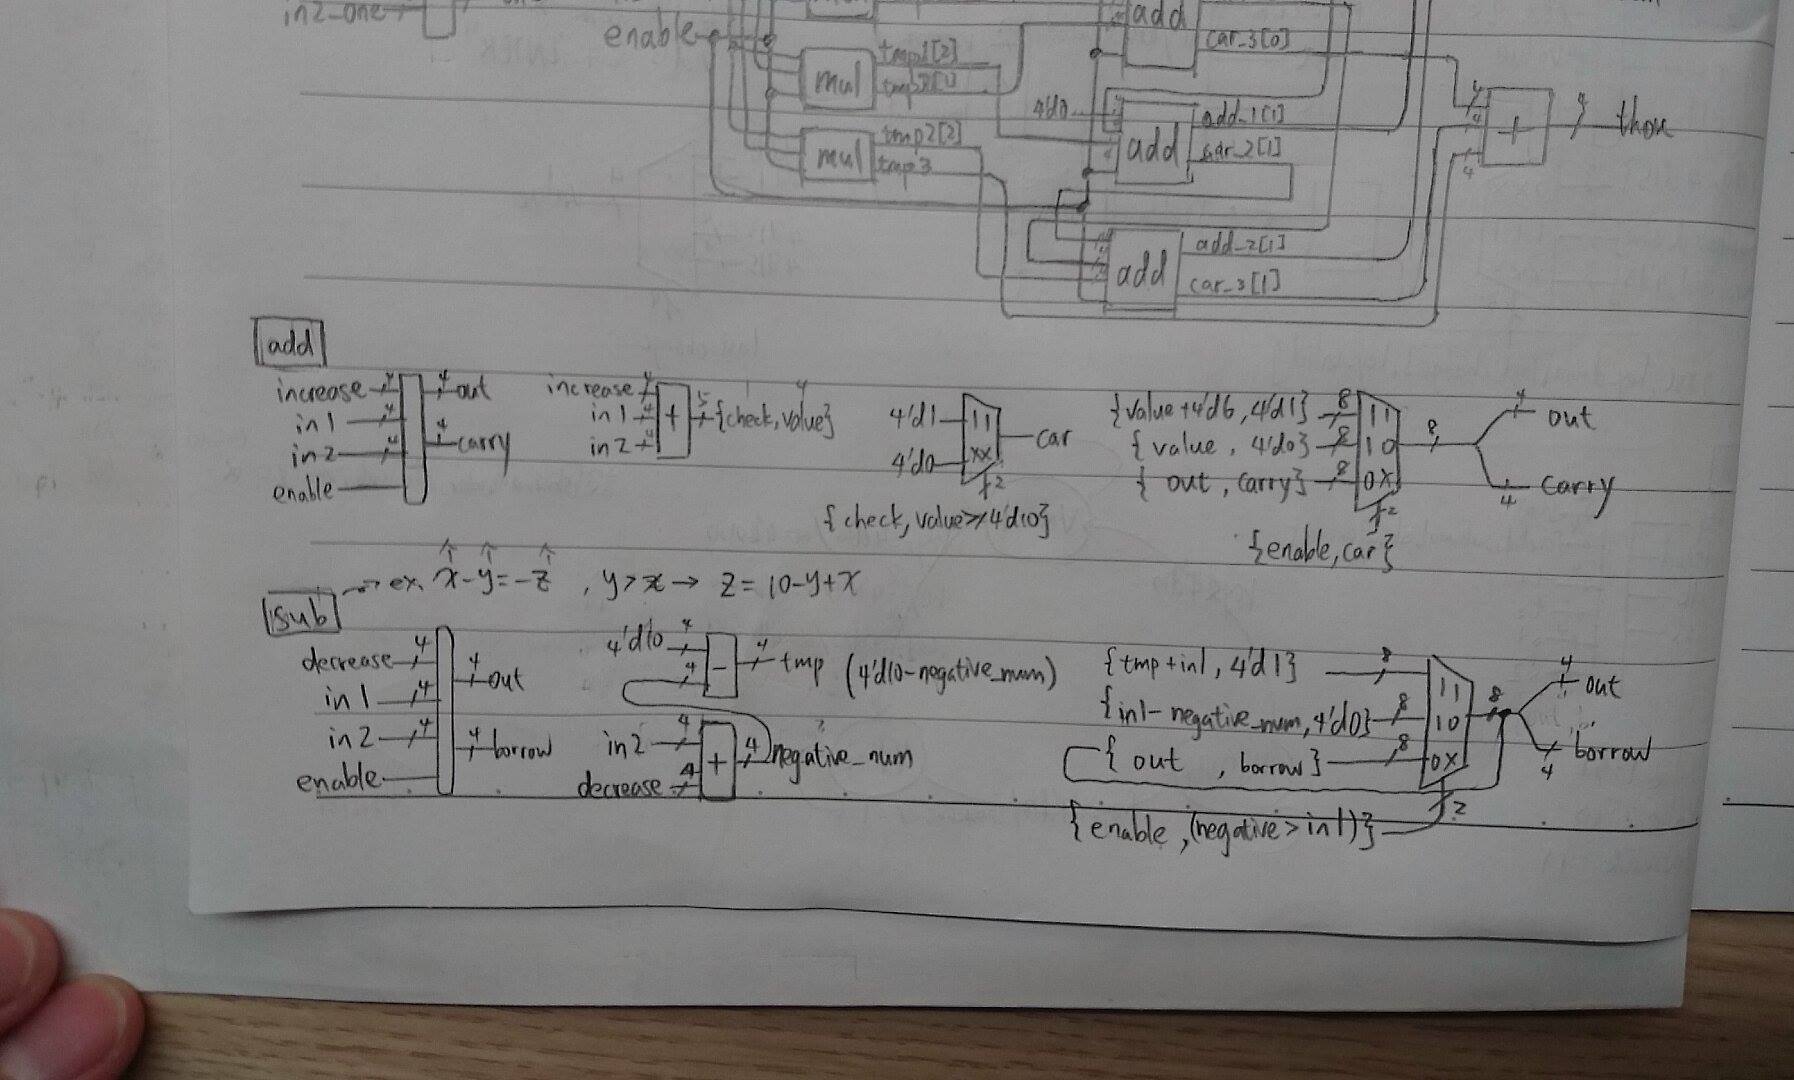 in2_one
enable
add
car_3[0]
mul
tmp1[2]
4'd0
add
add_1[1]
car_2[1]
4
4
4
+
4
thou
mul
tmp2[2]
tmp3
add
add_2[1]
car_3[1]
add
increase 4
in1 4
in2 4
enable
4 out
4 carry
increase 4
in1 4
in2 4
+
5 {check, value}
4'd1
11
4'd0
xx
car
2
{check, value≥4'd10}
{value+4'd6, 4'd1} 8
11
{value, 4'd0} 8
10
{out, carry} 8
0X
8
4 out
4 carry
2
{enable, car}
sub
→ ex. x-y=-z , y>x → z = 10-y+x
decrease 4
in1 4
in2 4
enable
4 out
4 borrow
4'd10 4
4
-
4 tmp (4'd10-negative_num)
in2 4
decrease 4
+
4 negative_num
{tmp+in1, 4'd1} 8
11
{in1-negative_num, 4'd0} 8
10
{out, borrow} 8
0X
8
4 out
4 borrow
2
{enable, (negative>in1)}